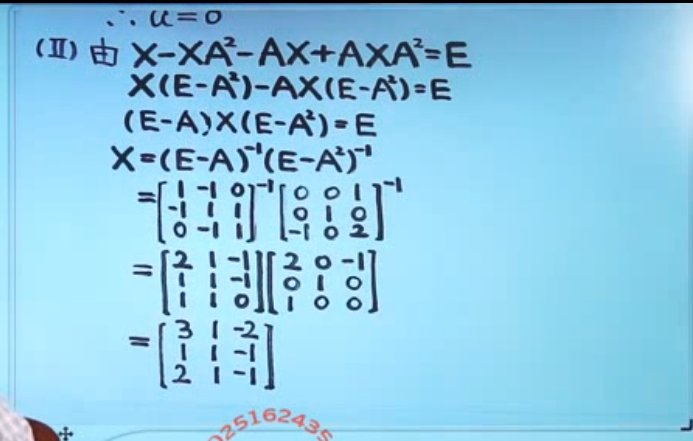 ∴ a=0
(Ⅱ) 由 X-XA²-AX+AXA²=E
X(E-A²)-AX(E-A²)=E
(E-A)X(E-A²)=E
X=(E-A)⁻¹(E-A²)⁻¹
=[1 -1 0; -1 1 1; 0 -1 1]⁻¹[0 0 1; 0 1 0; -1 0 2]⁻¹
=[2 1 -1; 1 1 -1; 1 1 0][2 0 -1; 0 1 0; 1 0 0]
=[3 1 -2; 1 1 -1; 2 1 -1]
025162435